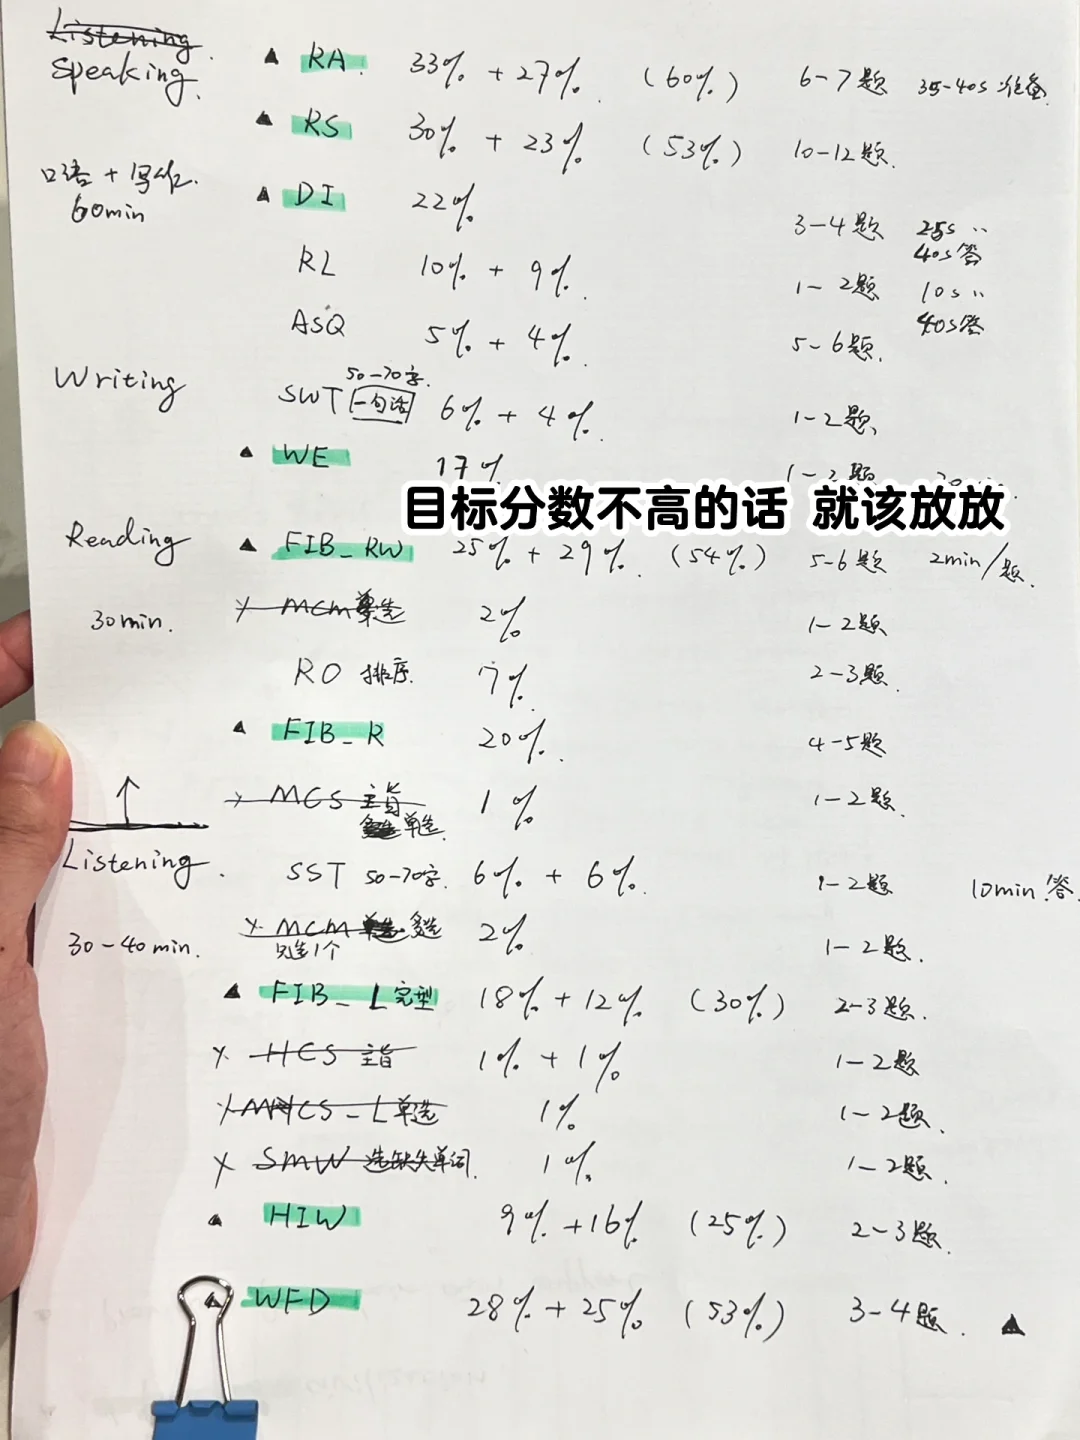 Listening.
Speaking.
▲ RA 33% + 27% (60%) 6-7题 35-40s 准备.
▲ RS 30% + 23% (53%) 10-12题.
口语 + 写作.
60min
▲ DI 22% 3-4题 25s ,,
40s答
RL 10% + 9% 1-2题 10s ,,
40s答
ASQ 5% + 4% 5-6题.
Writing
50-70字.
SWT 一句话 6% + 4% 1-2题.
▲ WE 17% 1-2题
目标分数不高的话 就该放放
Reading
▲ FIB_RW 25% + 29% (54%) 5-6题 2min/题.
30min.
× MCM 单选 2% 1-2题
RO 排序. 7% 2-3题.
▲ FIB_R 20%. 4-5题
× MCS 主旨 1% 1-2题.
单选.
↑
Listening.
SST 50-70字. 6% + 6%. 1-2题 10min 答.
30-40min.
× MCM 多选 2% 1-2题.
只选1个
▲ FIB_L 完型 18% + 12% (30%) 2-3题.
× HCS 主旨 1% + 1% 1-2题
× MCS_L 单选 1% 1-2题.
× SMW 选缺失单词. 1% 1-2题.
▲ HIW 9% + 16% (25%) 2-3题.
▲ WFD 28% + 25% (53%) 3-4题. ▲